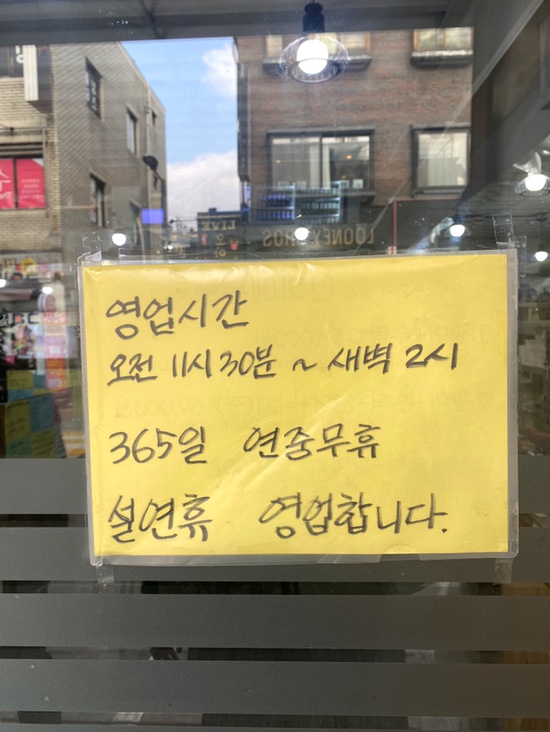 영업시간
오전 11시 30분 ~ 새벽 2시
365일 연중무휴
설연휴 영업합니다.
LIVE